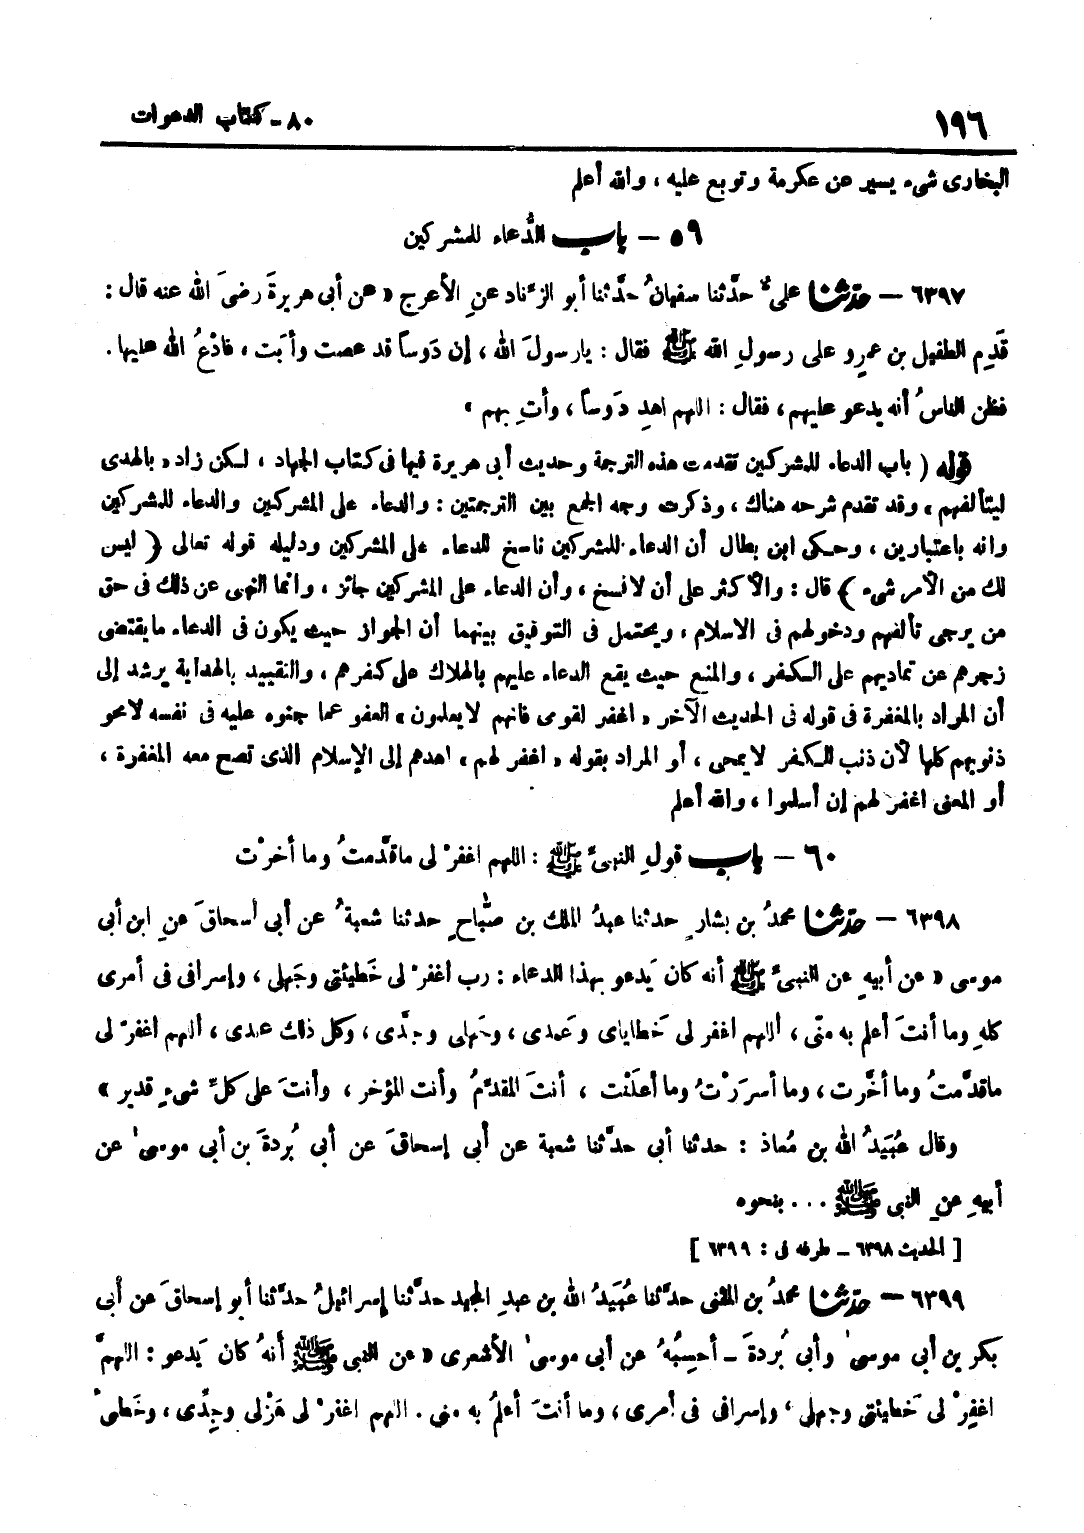 ١٩٦
٨٠ - كتاب الدعوات
البخارى شىء يسير عن عكرمة وتوبع عليه ، والله أعلم
٥٩ – باب الدُّعاء للمشركين
٦٣٩٧ – حدّثنا علىٌّ حدَّثنا سفيانُ حدَّثنا أبو الزِّناد عنِ الأعرج « عن أبى هريرةَ رضىَ الله عنه قال :
قَدِم الطفيل بن عمرو على رسولِ الله ﷺ فقال : يارسولَ الله ، إن دَوساً قد عصت وأبَت ، فادْعُ الله عليها .
فظن الناسُ أنه يدعو عليهم ، فقال : اللهم اهدِ دَوساً ، وأتِ بهم »
قوله ( باب الدعاء للمشركين تقدمت هذه الترجمة وحديث أبى هريرة فيها فى كتاب الجهاد ، لكن زاد « بالهدى
ليتألفهم » وقد تقدم شرحه هناك ، وذكرت وجه الجمع بين الترجمتين : والدعاء على المشركين والدعاء للمشركين
وانه باعتبارين ، وحكى ابن بطال أن الدعاء للمشركين ناسخ للدعاء على المشركين ودليله قوله تعالى ( ليس
لك من الأمر شىء ) قال : والأكثر على أن لا نسخ ، وأن الدعاء على المشركين جائز ، وانما النهى عن ذلك فى حق
من يرجى تألفهم ودخولهم فى الاسلام ، ويحتمل فى التوفيق بينهما أن الجواز حيث يكون فى الدعاء ما يقتضى
زجرهم عن تماديهم على الكفر ، والمنع حيث يقع الدعاء عليهم بالهلاك على كفرهم ، والتقييد بالهداية يرشد إلى
أن المراد بالمغفرة فى قوله فى الحديث الآخر « اغفر لقومى فانهم لا يعلمون » العفو عما جنوه عليه فى نفسه لا محو
ذنوبهم كلها لأن ذنب الكفر لا يمحى ، أو المراد بقوله « اغفر لهم » اهدهم إلى الإسلام الذى تصح معه المغفرة ،
أو المعنى اغفر لهم إن أسلموا ، والله أعلم
٦٠ – باب قولِ النبىِّ ﷺ : اللهم اغفرْ لى ماقدَّمتُ وما أخرْت
٦٣٩٨ – حدّثنا محمدُ بن بشارٍ حدثنا عبدُ الملك بن صبَّاحٍ حدثنا شعبةُ عن أبى أسحاقَ عنِ ابن أبى
موسى « عن أبيهِ عن النبىِّ ﷺ أنه كان يَدعو بهذا الدعاء : رب أغفرْ لى خَطيئتى وجَهلى ، وإسرافى فى أمرى
كلهِ وما أنتَ أعلم به منّى ، ألّلهم أغفر لى خَطاياى وعَمدى ، وجَهلى وجدَّى ، وكل ذلك عندى ، أللهم أغفرْ لى
ماقدَّمتُ وما أخَّرت ، وما أسرَرْتُ وما أعلَنْت ، أنتَ المقدِّمُ وأنت المؤخر ، وأنتَ على كلِّ شىءٍ قدير »
وقال عُبَيدُ الله بن مُعاذ : حدثنا أبى حدَّثنا شعبة عن أبى إسحاقَ عن أبى بُردةَ بن أبى موسىٰ عن
أبيهِ عنِ النبى ﷺ ... بنحوه
[ الحديث ٦٣٩٨ – طرفه فى : ٦٣٩٩ ]
٦٣٩٩ – حدّثنا محمدُ بن المثنى حدَّثنا عُبَيدُ الله بن عبدِ المجيد حدَّثنا إسرائيلُ حدَّثنا أبو إسحاقَ عن أبى
بكر بن أبى موسىٰ وأبى بُردةَ – أحسِبُهُ عن أبى موسىٰ الأشعرى « عن النبى ﷺ أنهُ كان يَدعو : اللهمَّ
اغفِرْ لى خَطيئتى وجهلى ، وإسرافى فى أمرى ، وما أنتَ أعلمُ به منى . اللهم اغفرْ لى هَزْلى وجِدِّى ، وخَطىْ